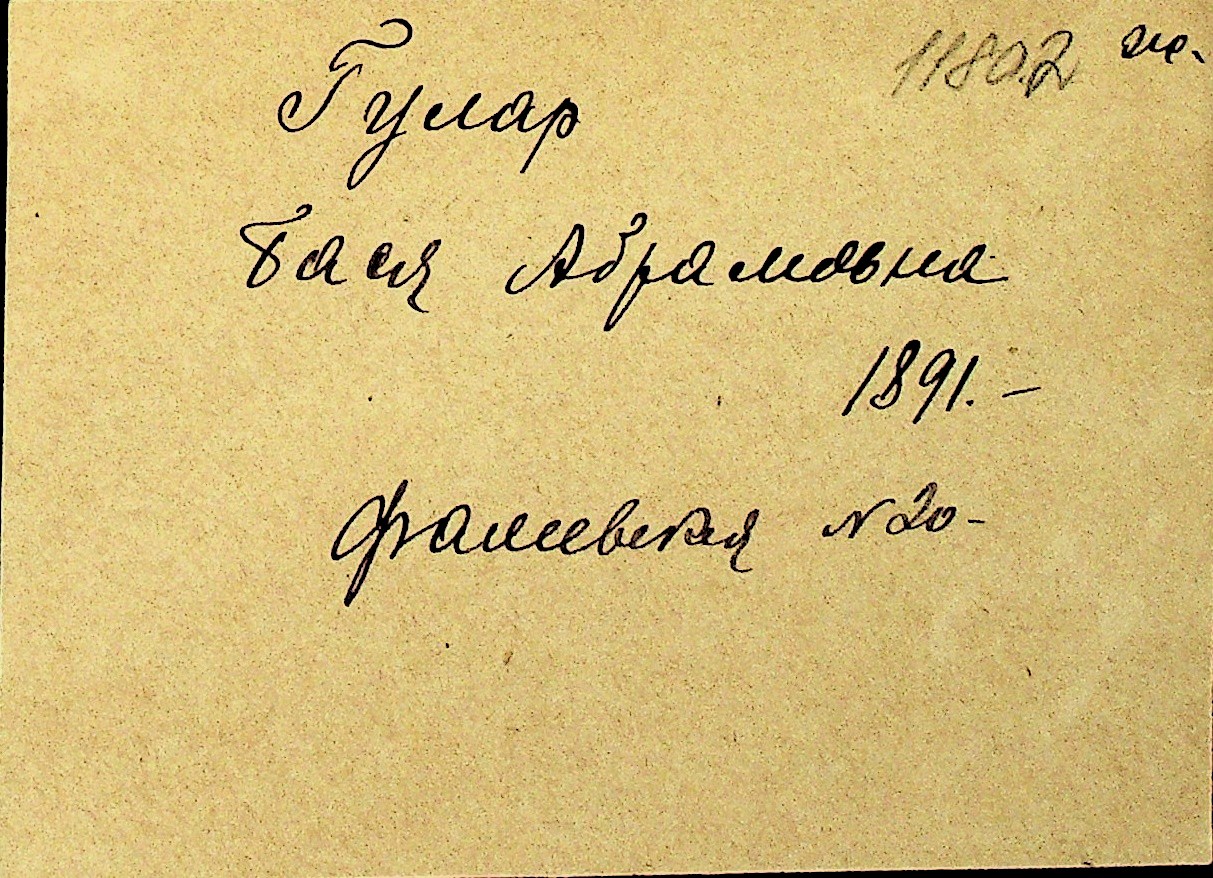 11802
Гулар
Бася Абрамовна
1891. –
Фалиевская N 20 –